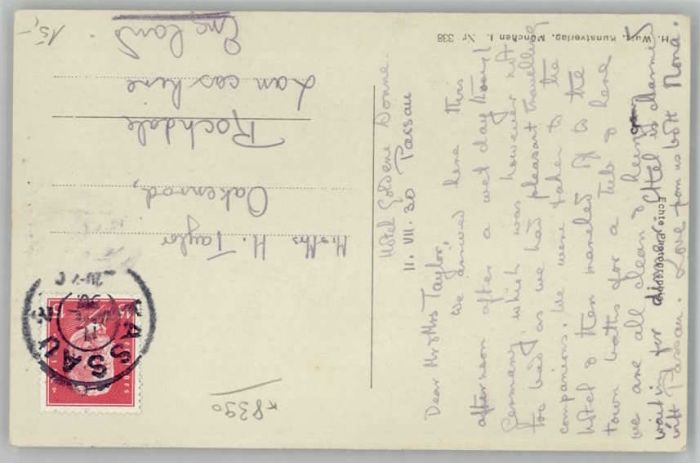 H. Wutz, Kunstverlag, München I. Nr 338
Hotel Goldene Sonne.
11. VII. 30 Passau
Dear Mr & Mrs Taylor,
We arrived here this
afternoon after a wet day through
Germany which was however not
too bad as we had pleasant travelling
companions. We were taken to the
hotel & then marched off to the
town baths for a tub & here
we are all clean & hungry
waiting for dinner. Ethel is charmed
with Passau. Love from us both Nona.
Mr & Mrs H. Taylor
Oakenrod,
Rochdale
Lancashire
England
Echte Photographie
PASSAU
15,-
*8390